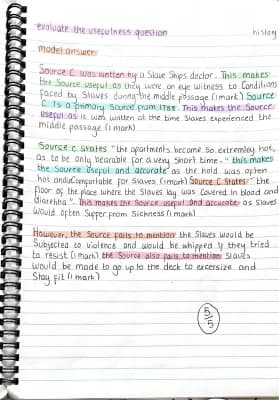 evaluate the usefulness question
history
model answer:
Source C was written by a Slave Ships doctor. This makes
the Source useful as they were an eye witness to Conditions
faced by Slaves during the middle passage (1 mark) Source
C is a primary Source from 1788. This makes the Source
useful as it was written at the time Slaves experienced the
middle passage (1 mark)
Source C States "the apartments became so extremely hot,
as to be only bearable for a very short time." this makes
the Source useful and accurate as the hold was often
hot and uncomfortable for Slaves (1 mark) Source C States "the
floor of the place where the Slaves lay was Covered in blood and
diarrhea". This makes the Source useful and accurate as Slaves
would often Suffer from Sickness (1 mark)
However, the Source fails to mention the Slaves would be
Subjected to violence and would be whipped if they tried
to resist (1 mark) the Source also fails to mention Slaves
would be made to go up to the deck to excersize and
Stay fit (1 mark)
5/5